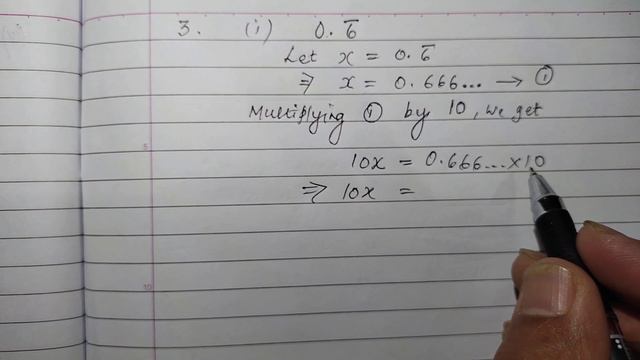 3. (i) 0.6̅
Let x = 0.6̅
⇒ x = 0.666... → ①
Multiplying ① by 10, we get
10x = 0.666...×10
⇒ 10x =